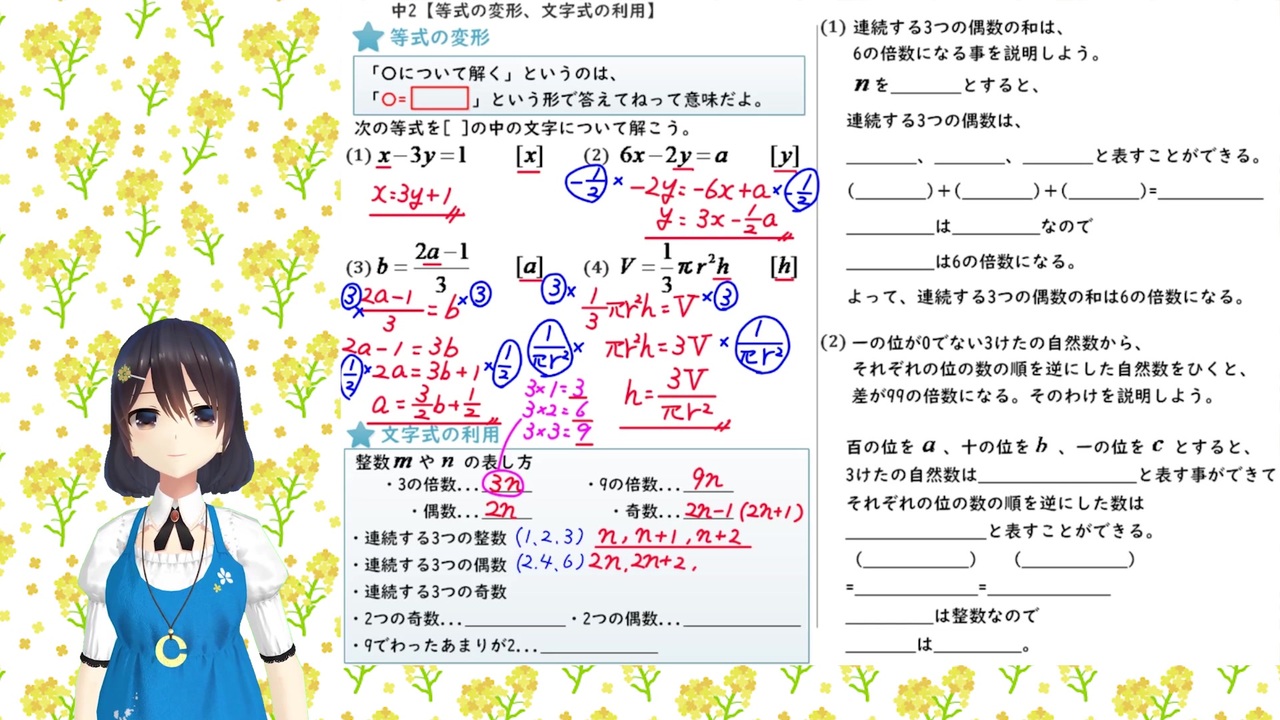 中2【等式の変形、文字式の利用】
等式の変形
「〇について解く」というのは、
「〇= 」という形で答えてねって意味だよ。
次の等式を[ ]の中の文字について解こう。
(1) x-3y=1 [x]
x=3y+1
(2) 6x-2y=a [y]
-1/2 × -2y=-6x+a × -1/2
y=3x-1/2a
(3) b=2a-1/3 [a]
3 × 2a-1/3=b × 3
2a-1=3b
1/2 × 2a=3b+1 × 1/2
a=3/2b+1/2
(4) V=1/3πr²h [h]
3 × 1/3πr²h=V × 3
1/πr² × πr²h=3V × 1/πr²
h=3V/πr²
3×1=3
3×2=6
3×3=9
文字式の利用
整数 m や n の表し方
・3の倍数... 3n ・9の倍数... 9n
・偶数... 2n ・奇数... 2n-1 (2n+1)
・連続する3つの整数 (1,2,3) n, n+1, n+2
・連続する3つの偶数 (2.4,6) 2n, 2n+2,
・連続する3つの奇数
・2つの奇数...________ ・2つの偶数...________
・9でわったあまりが2...________
(1) 連続する3つの偶数の和は、
6の倍数になる事を説明しよう。
nを______とすると、
連続する3つの偶数は、
______、______、______と表すことができる。
(______)+(______)+(______)=________
______は______なので
______は6の倍数になる。
よって、連続する3つの偶数の和は6の倍数になる。
(2) 一の位が0でない3けたの自然数から、
それぞれの位の数の順を逆にした自然数をひくと、
差が99の倍数になる。そのわけを説明しよう。
百の位を a 、十の位を b 、一の位を c とすると、
3けたの自然数は________と表す事ができて
それぞれの位の数の順を逆にした数は
________と表すことができる。
(________) (________)
=________=________
______は整数なので
______は______。
C